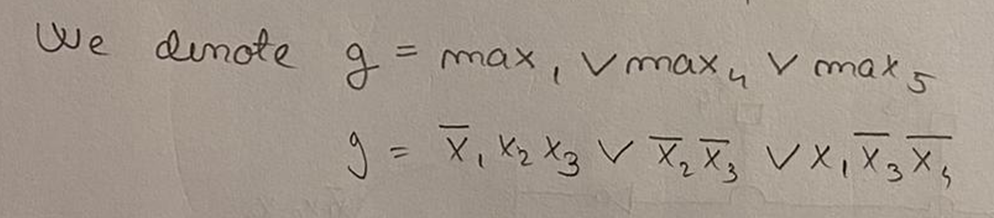 We denote g = max₁ ∨ max₄ ∨ max₅
g = x̅₁ x₂ x₃ ∨ x̅₂ x̅₃ ∨ x₁ x̅₃ x̅₄